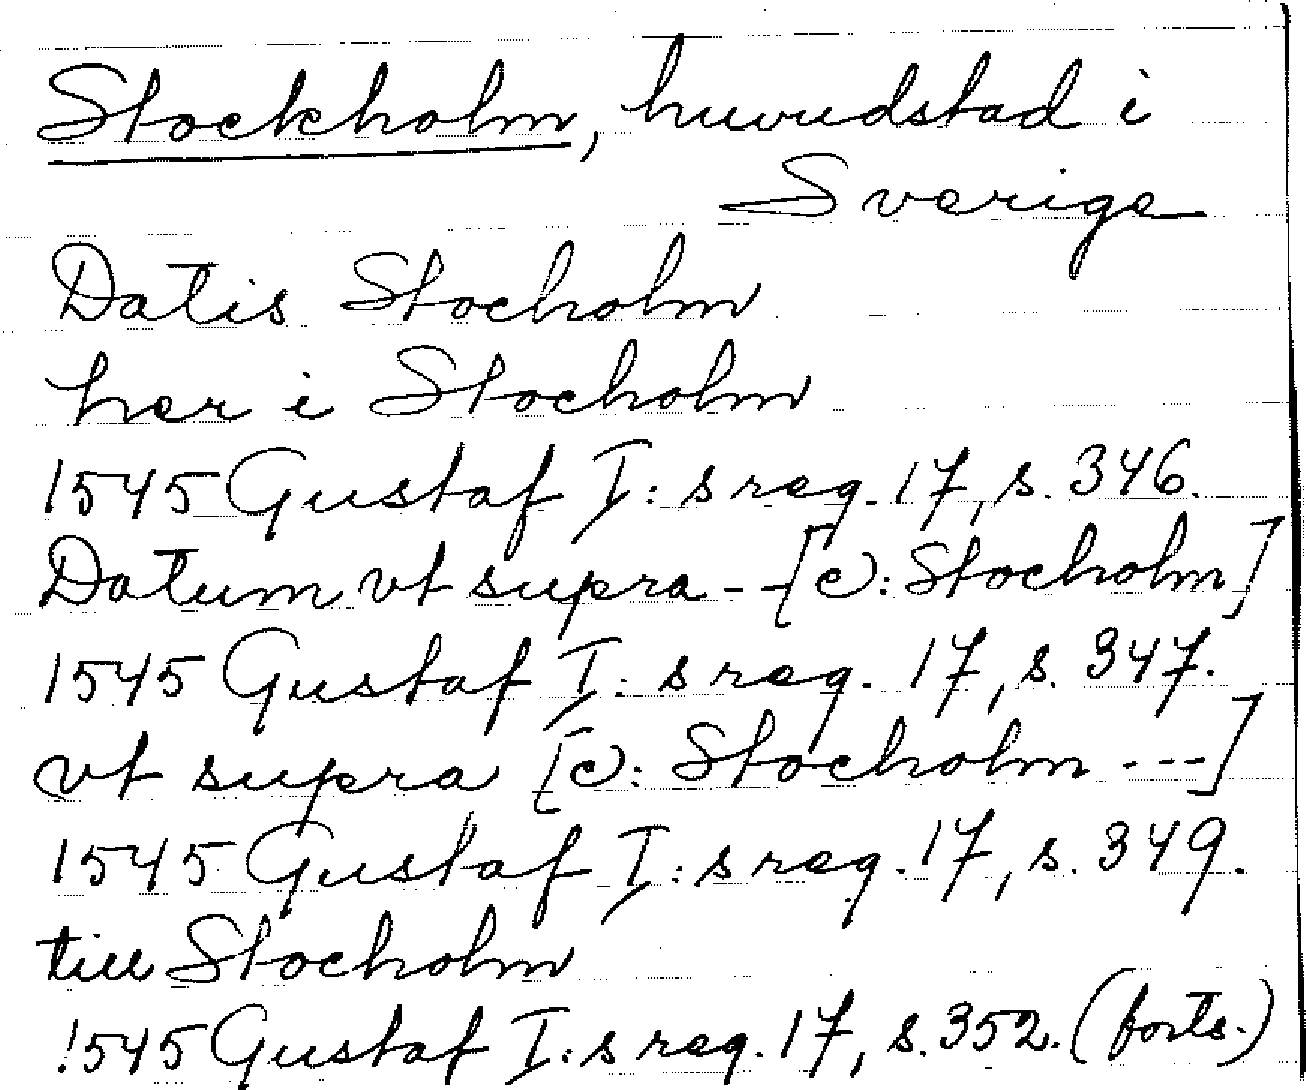 Stockholm, huvudstad i
Sverige
Datis Stocholm
her i Stocholm
1545 Gustaf I:s reg. 17, s. 346.
Datum vt supra -- [ɔ: Stocholm]
1545 Gustaf I:s reg. 17, s. 347.
vt supra [ɔ: Stocholm ---]
1545 Gustaf I:s reg. 17, s. 349.
till Stocholm
1545 Gustaf I:s reg. 17, s. 352. (forts.)